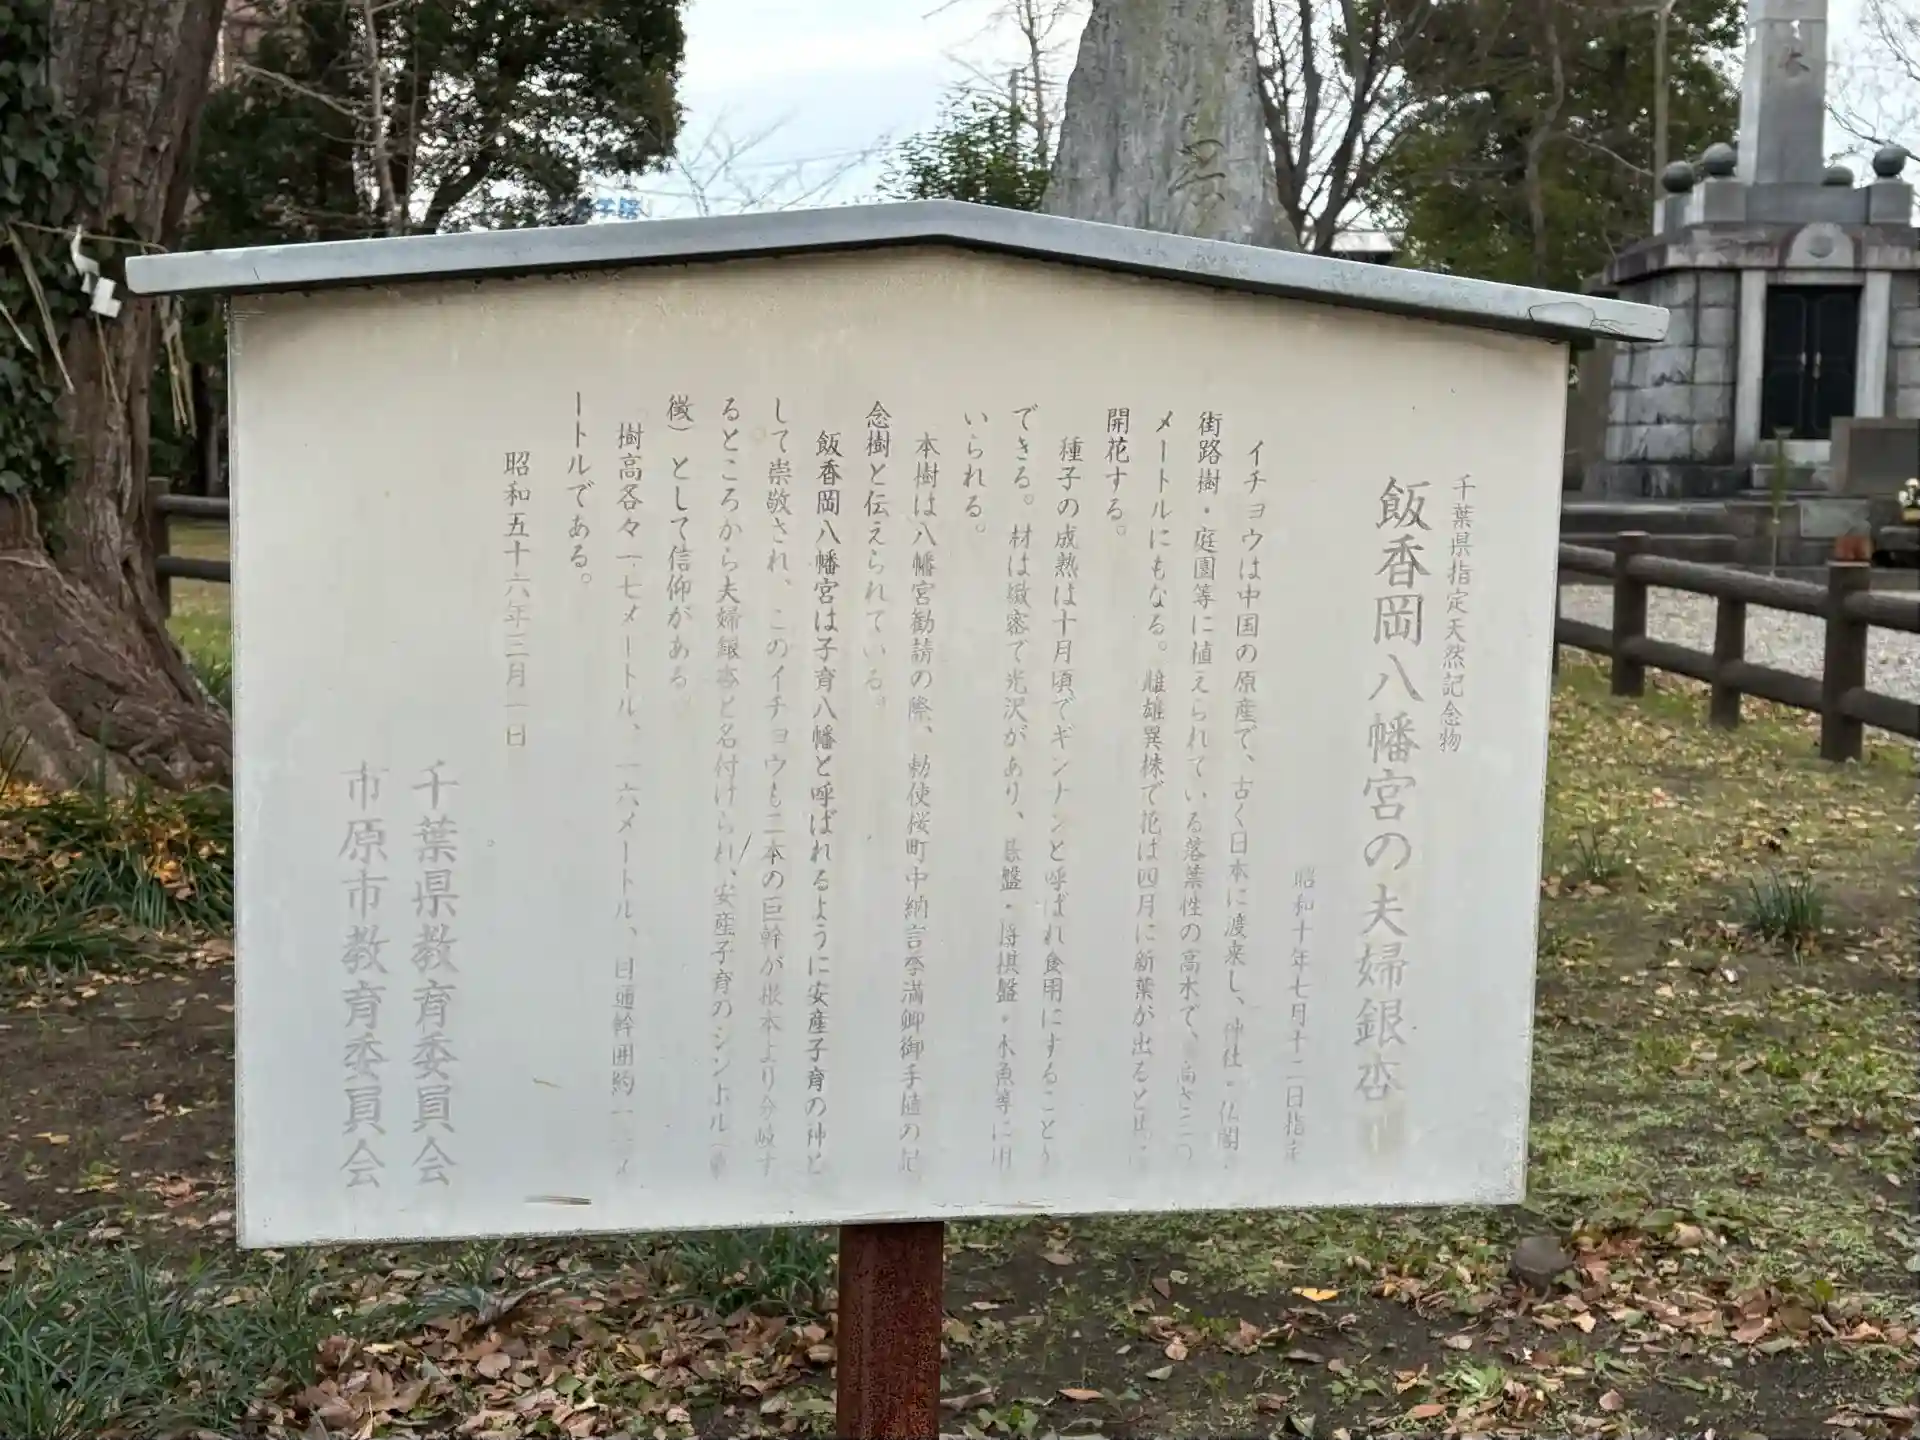 千葉県指定天然記念物
飯香岡八幡宮の夫婦銀杏
昭和十年七月十二日指定
イチョウは中国の原産で、古く日本に渡来し、神社・仏閣・
街路樹・庭園等に植えられている落葉性の高木で、高さ三〇
メートルにもなる。雌雄異株で花は四月に新葉が出ると共に
開花する。
種子の成熟は十月頃でギンナンと呼ばれ食用にすることが
できる。材は緻密で光沢があり、碁盤・将棋盤・木魚等に用
いられる。
本樹は八幡宮勧請の際、勅使桜町中納言季満卿御手植の記
念樹と伝えられている。
飯香岡八幡宮は子育八幡と呼ばれるように安産子育の神と
して崇敬され、このイチョウも二本の巨幹が根本より分岐す
るところから夫婦銀杏と名付けられ、安産子育のシンボル（象
徴）として信仰がある。
樹高各々一七メートル、一六メートル、目通幹囲約一メ
ートルである。
昭和五十六年三月一日
千葉県教育委員会
市原市教育委員会